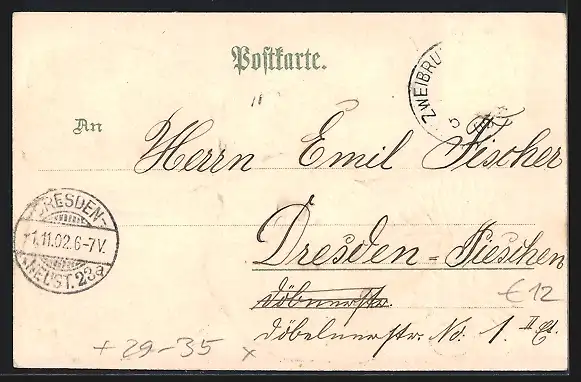 Postkarte.
ZWEIBRÜ
5
An
Herrn Emil Fischer
DRESDEN-
1.11.02.6-7V.
NEUST. 23a
Dresden=Pieschen
€12
Döbelnerstr. No: 1. II Et.
+ 29-35 x